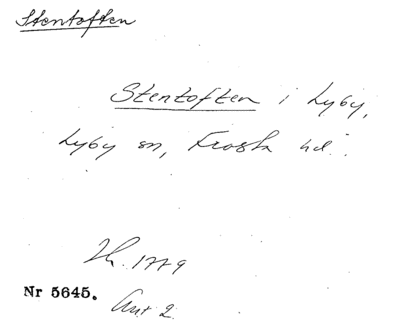 Stentoften
Stentoften i Lyby,
Lyby sn, Frosta hd.
1779
Nr 5645.
Ant 2